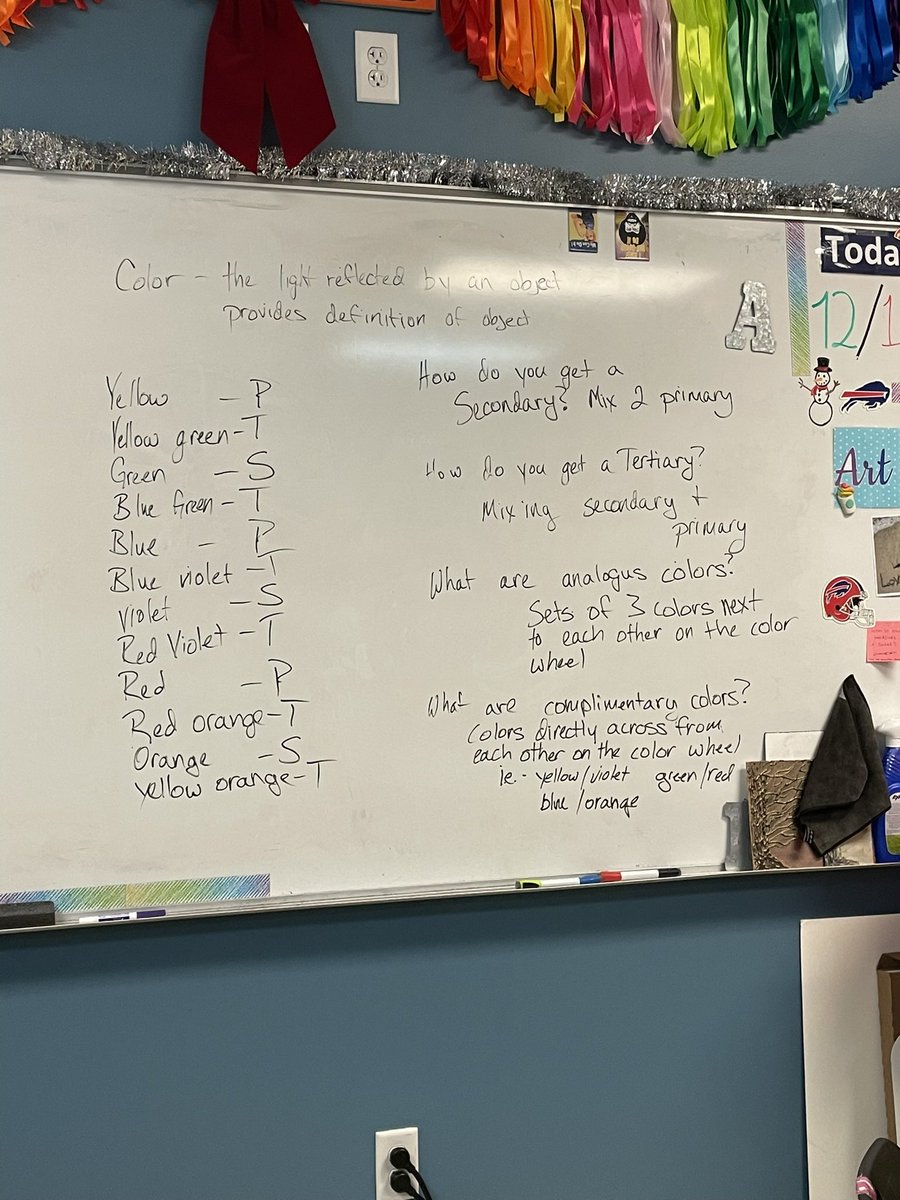 Color - the light reflected by an object
provides definition of object
Yellow - P
Yellow green - T
Green - S
Blue Green - T
Blue - P
Blue violet - T
violet - S
Red Violet - T
Red - P
Red orange - T
Orange - S
yellow orange - T
How do you get a
Secondary? Mix 2 primary
How do you get a Tertiary?
Mixing secondary +
primary
What are analogus colors?
Sets of 3 colors next
to each other on the color
wheel
What are complimentary colors?
Colors directly across from
each other on the color wheel
ie.- yellow/violet green/red
blue/orange
A
Toda
12/1
Art